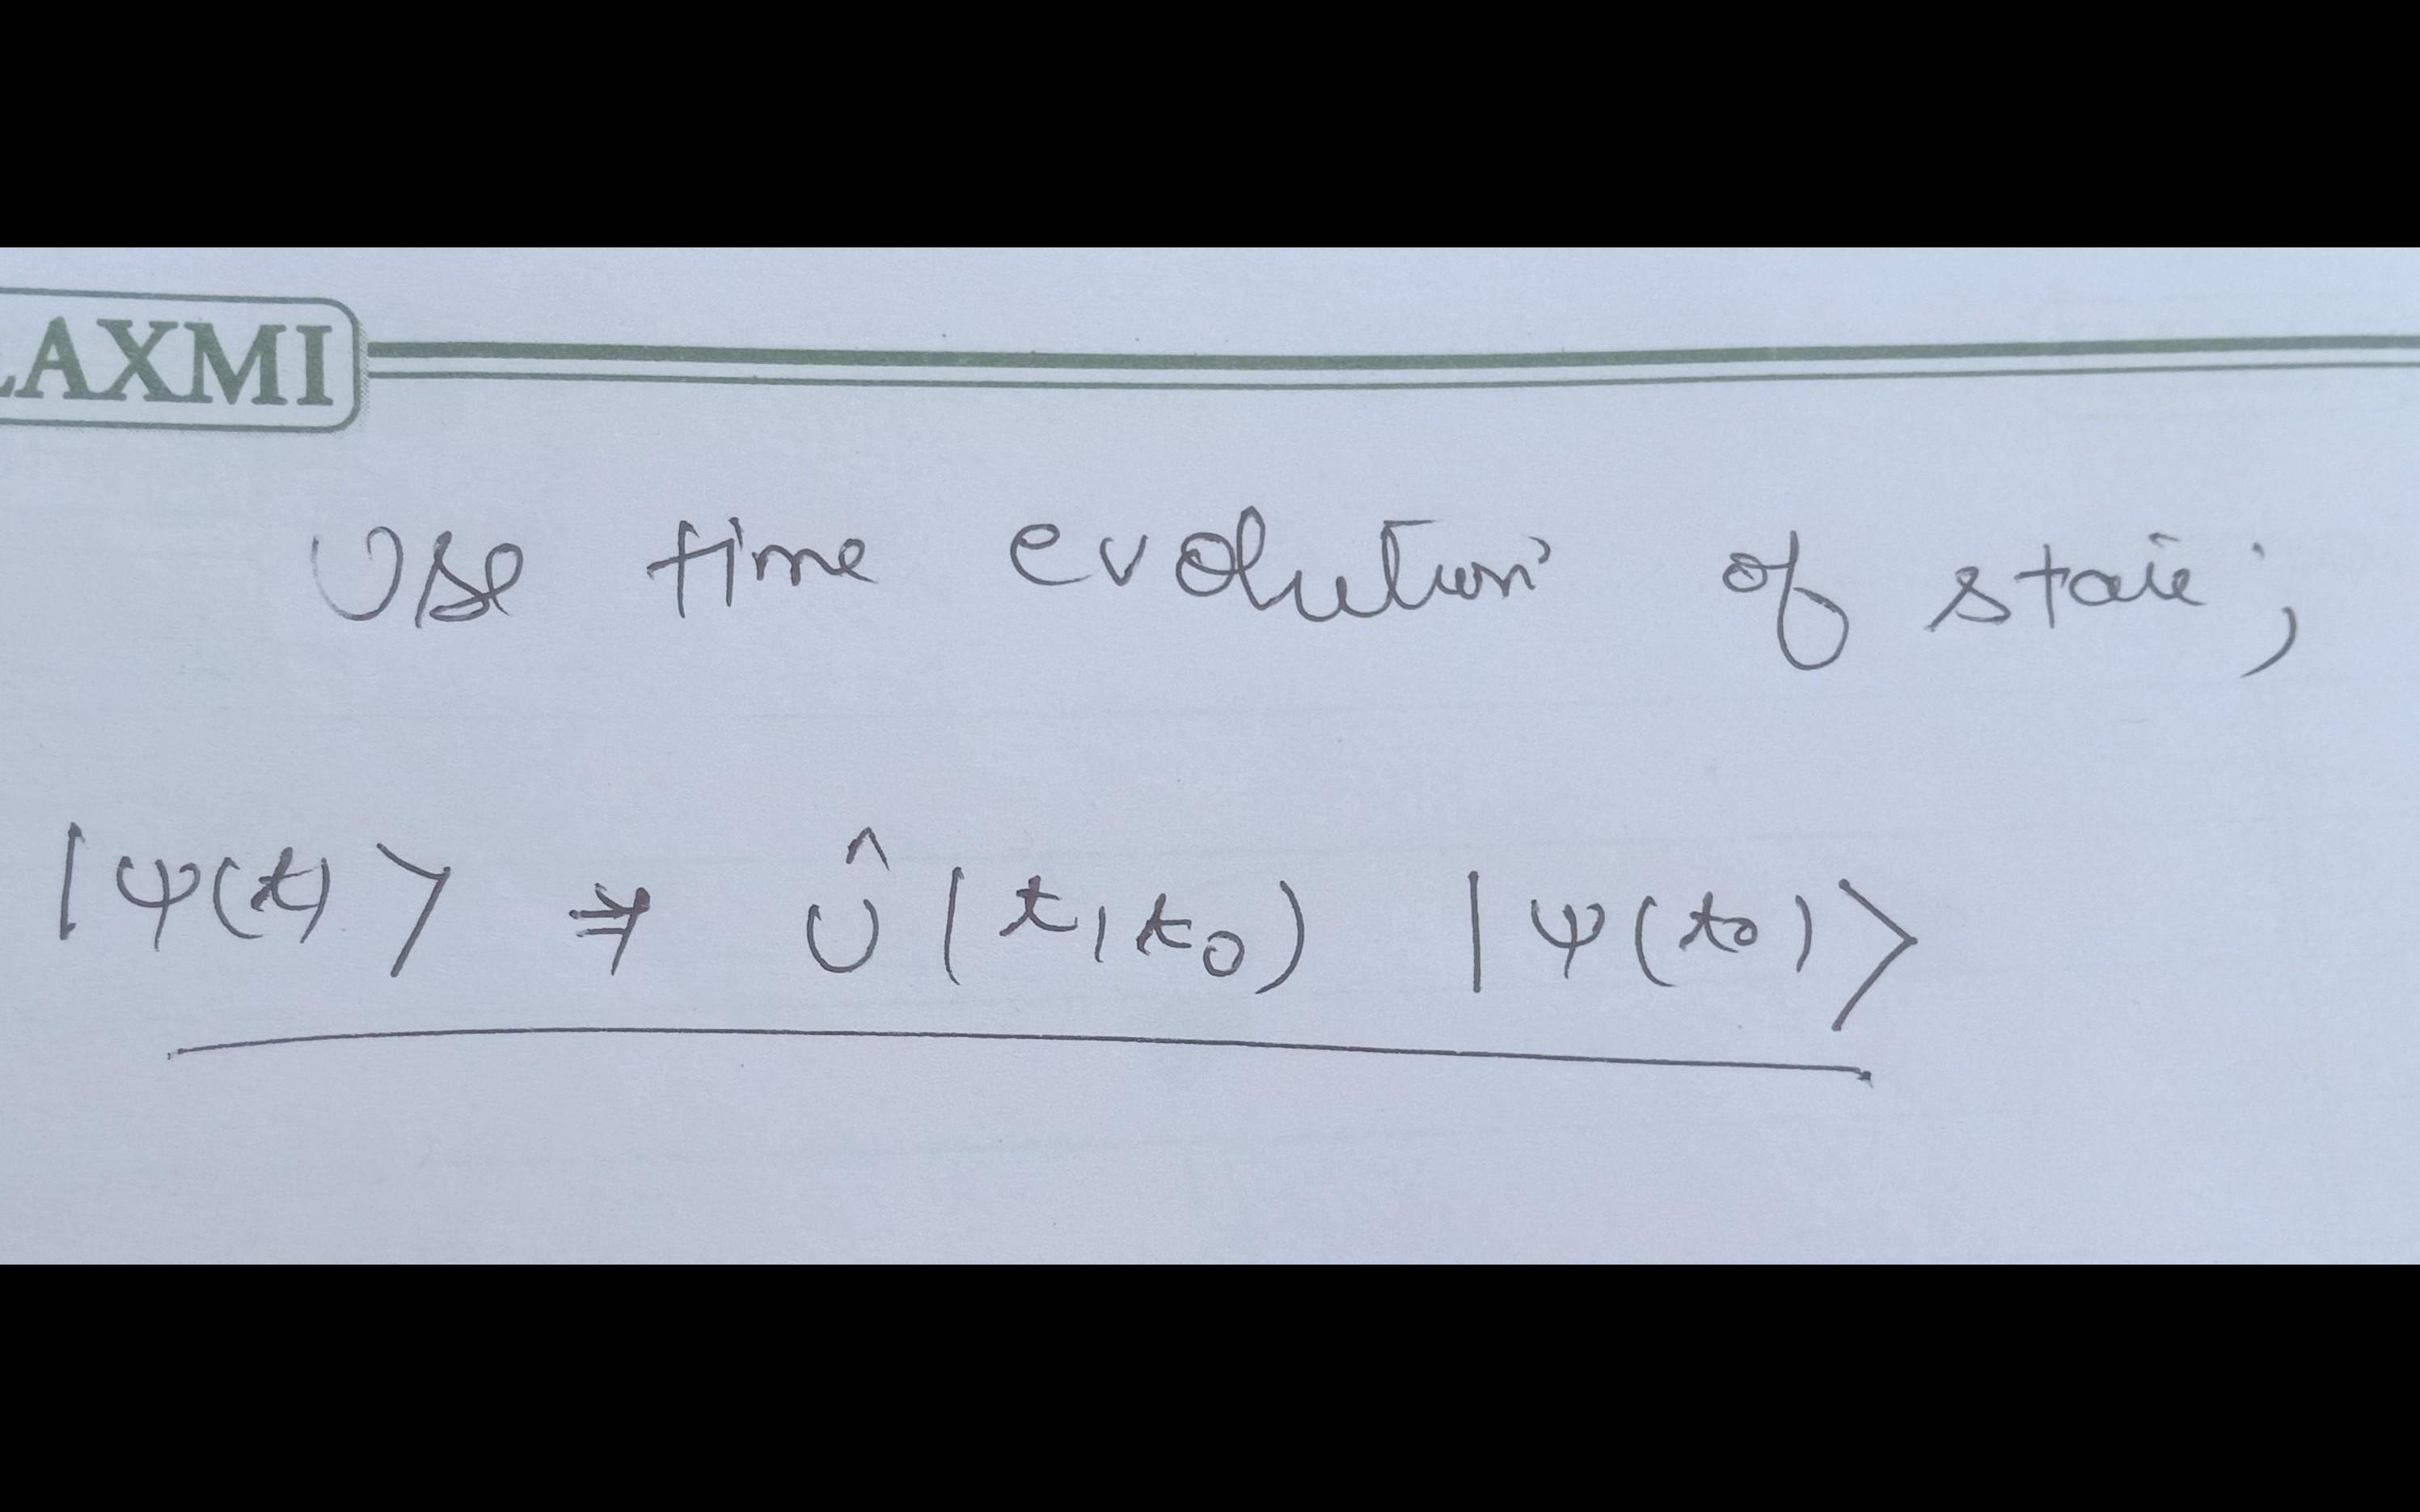 LAXMI
Use time evolution of state;
|ψ(t)⟩ ⇒ Û(t,t₀) |ψ(t₀)⟩